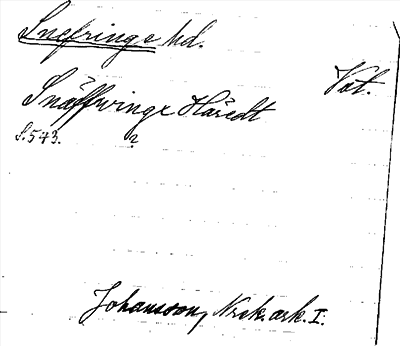 Snefringe hd.
Vat.
Snäffringe Häredt
S. 543. ?
Johansson, Nrsk. ark. I.